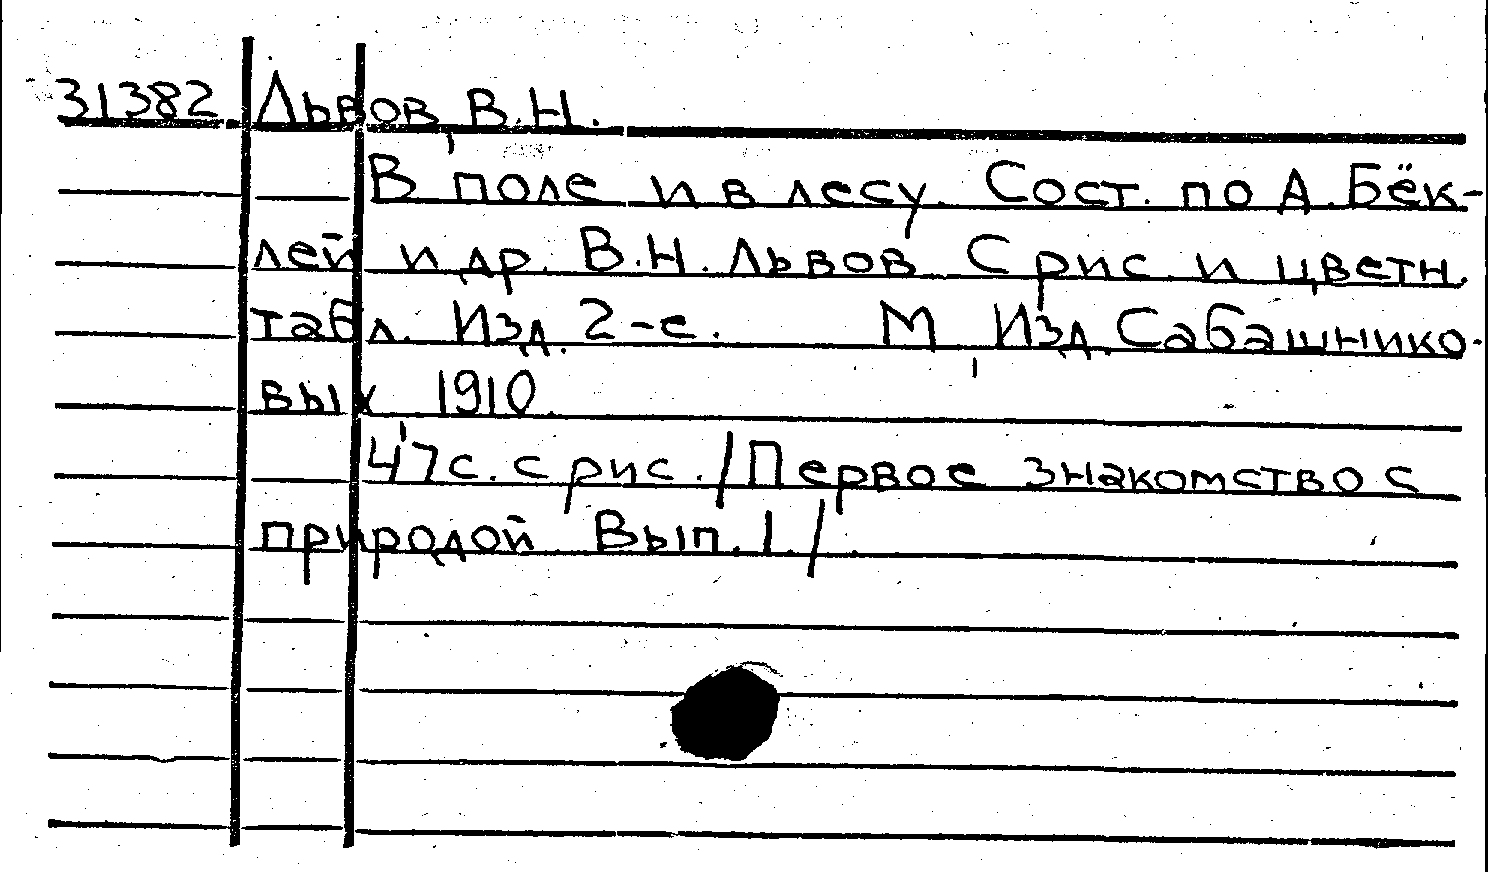 31382 Львов, В.Н.
В поле и в лесу. Сост. по А. Бёк-
лей и др. В.Н. Львов С рис. и цветн.
табл. Изд. 2-е. М, Изд. Сабашнико-
вых 1910.
47 с. с рис. /Первое знакомство с
природой Вып. 1./.